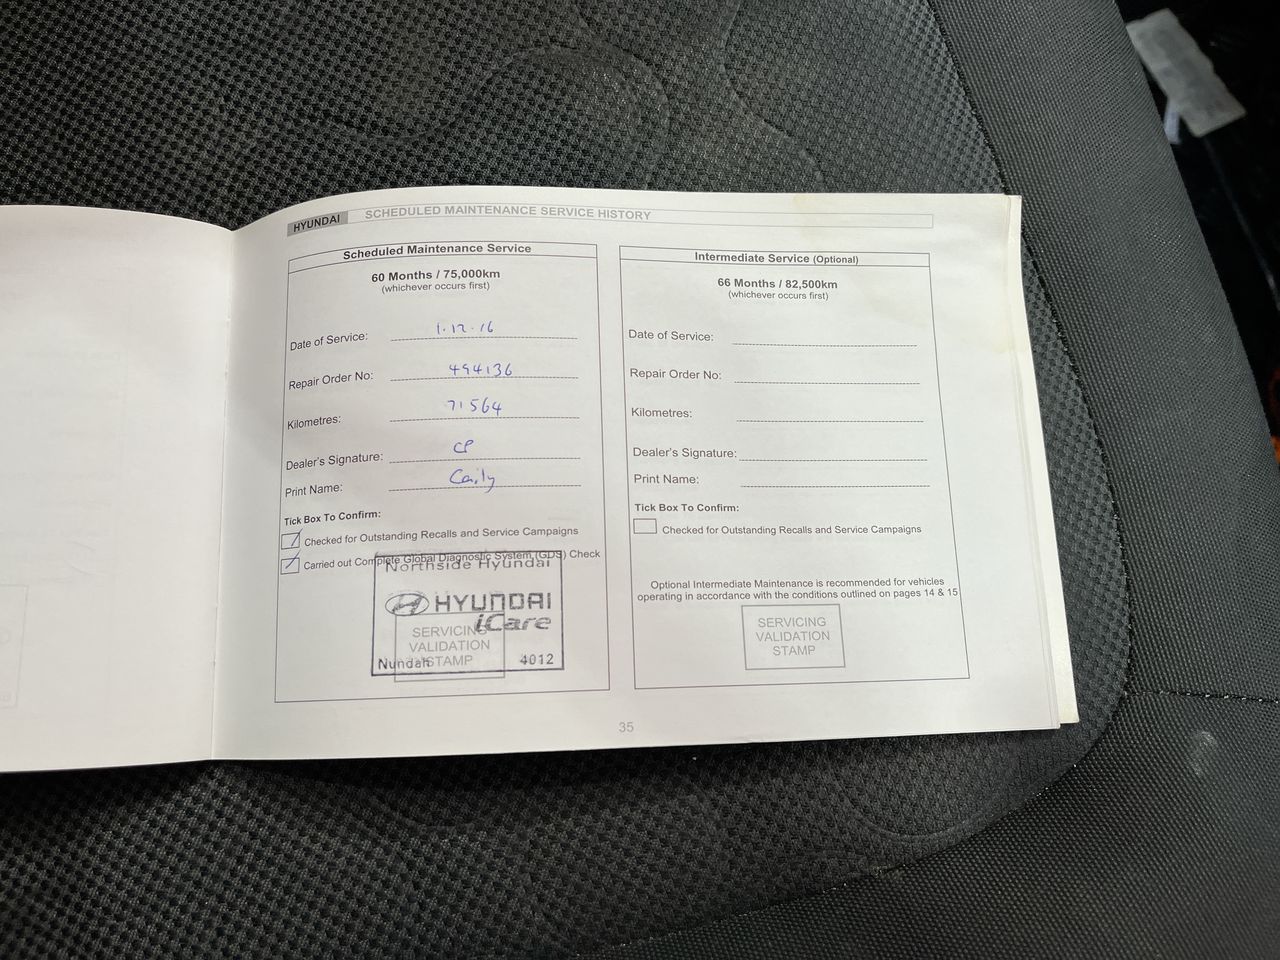 HYUNDAI SCHEDULED MAINTENANCE SERVICE HISTORY
Scheduled Maintenance Service
60 Months / 75,000km
(whichever occurs first)
Date of Service: 1.12.16
Repair Order No: 494136
Kilometres: 71564
Dealer's Signature: CP
Print Name:
Tick Box To Confirm:
Checked for Outstanding Recalls and Service Campaigns
Carried out Complete Global Diagnostic System (GDS) Check
Northside Hyundai
HYUNDAI
iCare
SERVICING
VALIDATION
STAMP
Nundah 4012
Intermediate Service (Optional)
66 Months / 82,500km
(whichever occurs first)
Date of Service:
Repair Order No:
Kilometres:
Dealer's Signature:
Print Name:
Tick Box To Confirm:
Checked for Outstanding Recalls and Service Campaigns
Optional Intermediate Maintenance is recommended for vehicles
operating in accordance with the conditions outlined on pages 14 & 15
SERVICING
VALIDATION
STAMP
35